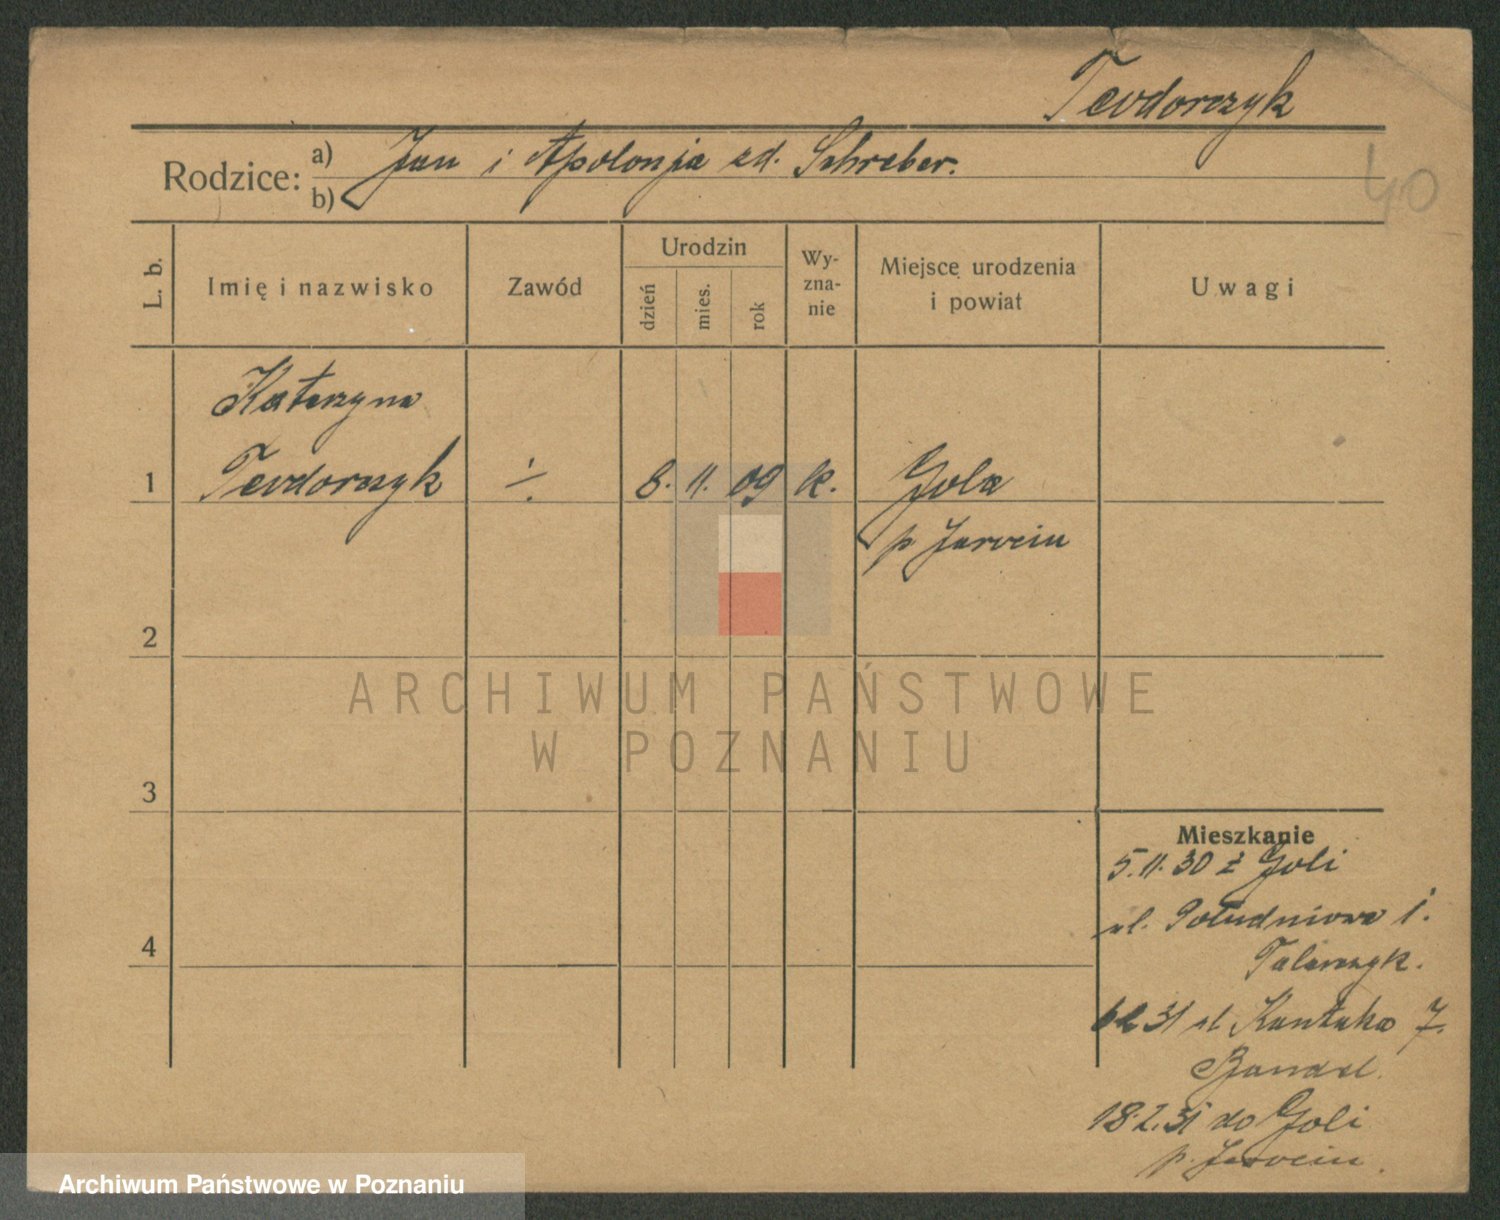 Teodorczyk
Rodzice: a) Jan i Apolonja zd. Schreber.
b)
40
L. b.
Imię i nazwisko
Zawód
Urodzin
dzień
mies.
rok
Wy-
zna-
nie
Miejsce urodzenia
i powiat
Uwagi
Katarzyna
1 Teodorczyk ./. 8. 11. 09 k. Gola
p Jarocin
2
ARCHIWUM PAŃSTWOWE
W POZNANIU
3
Mieszkanie
5.11.30 z Goli
ul. Południowa 1.
4
Talarczyk.
31 ul Kantaka 7.
18.2.31 do Goli
p. Jarocin.
Archiwum Państwowe w Poznaniu